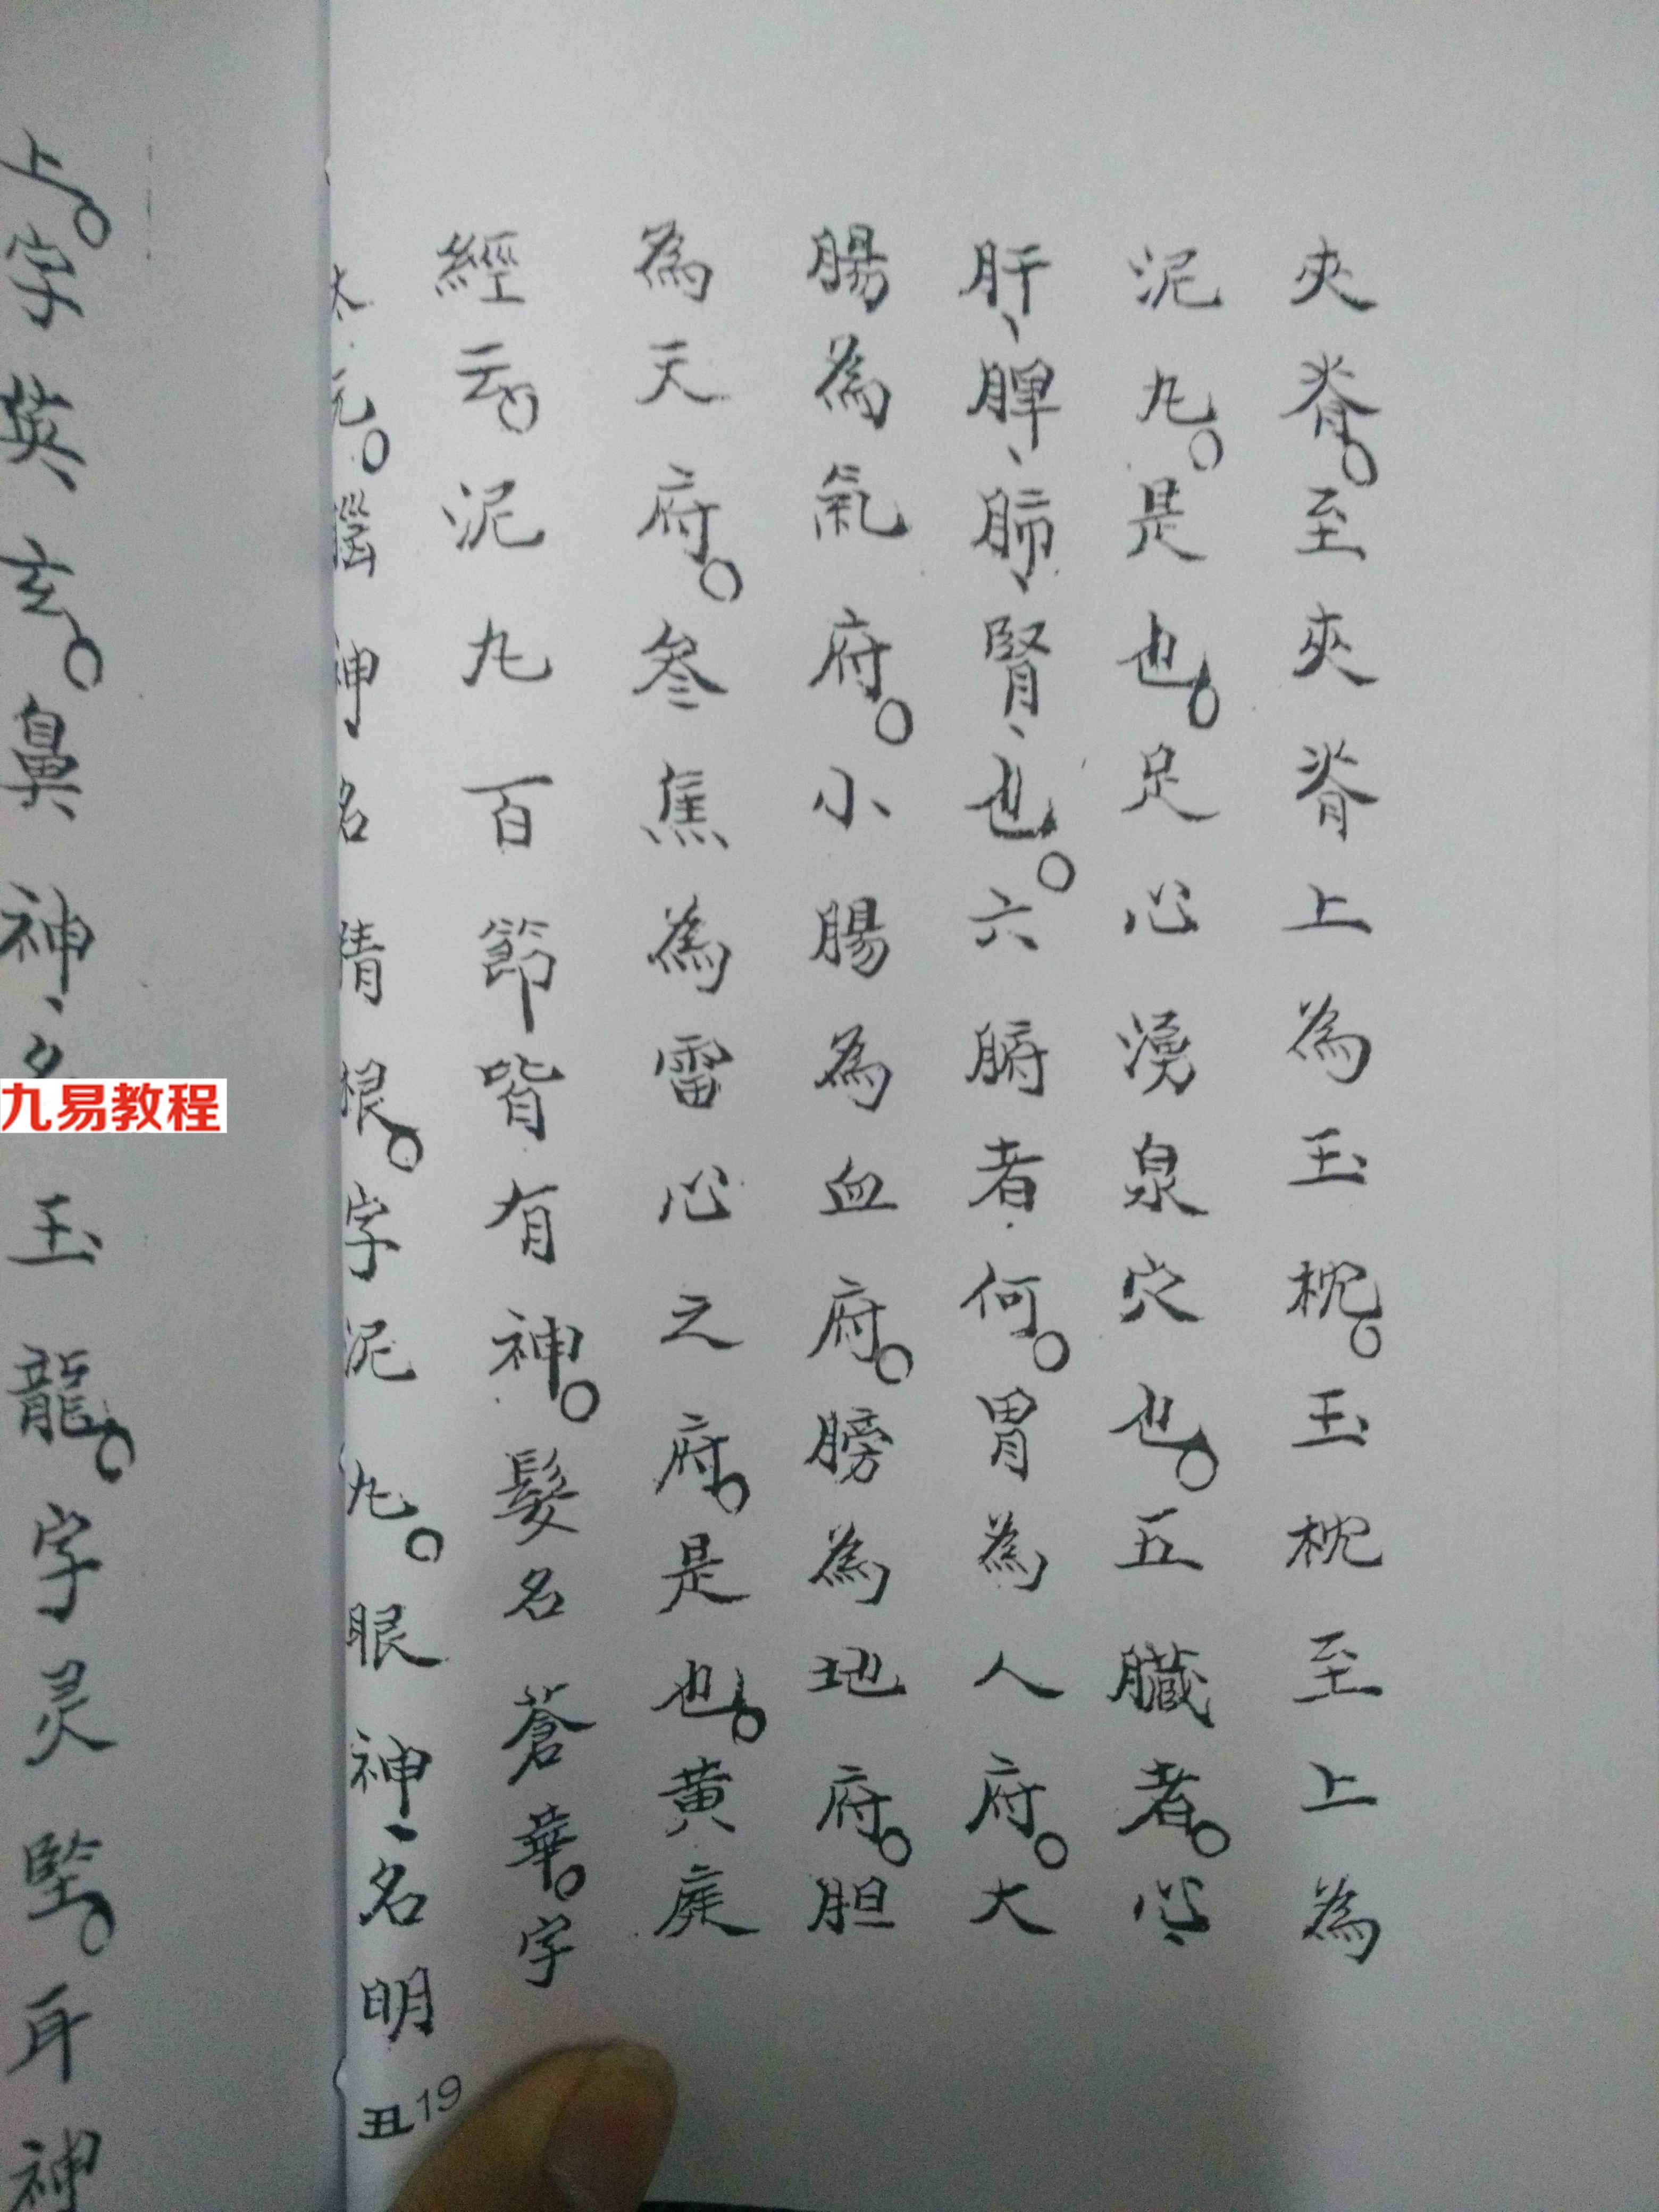 夾脊。至夾脊上為玉枕。玉枕至上為
泥九。是也。足心湧泉穴也。五臟者。心、
肝、脾、肺、腎、也。六腑者何。胃為人府。大
腸為氣府。小腸為血府。膀為地府。胆
為天府。叁焦為雷心之府。是也。黄庭
經云。泥九百節皆有神。髮名蒼華。字
太元。腦神名精根。字泥九。眼神、名明
上。字英玄。鼻神、名玉龍。字灵堅。耳神
丑19
九易教程